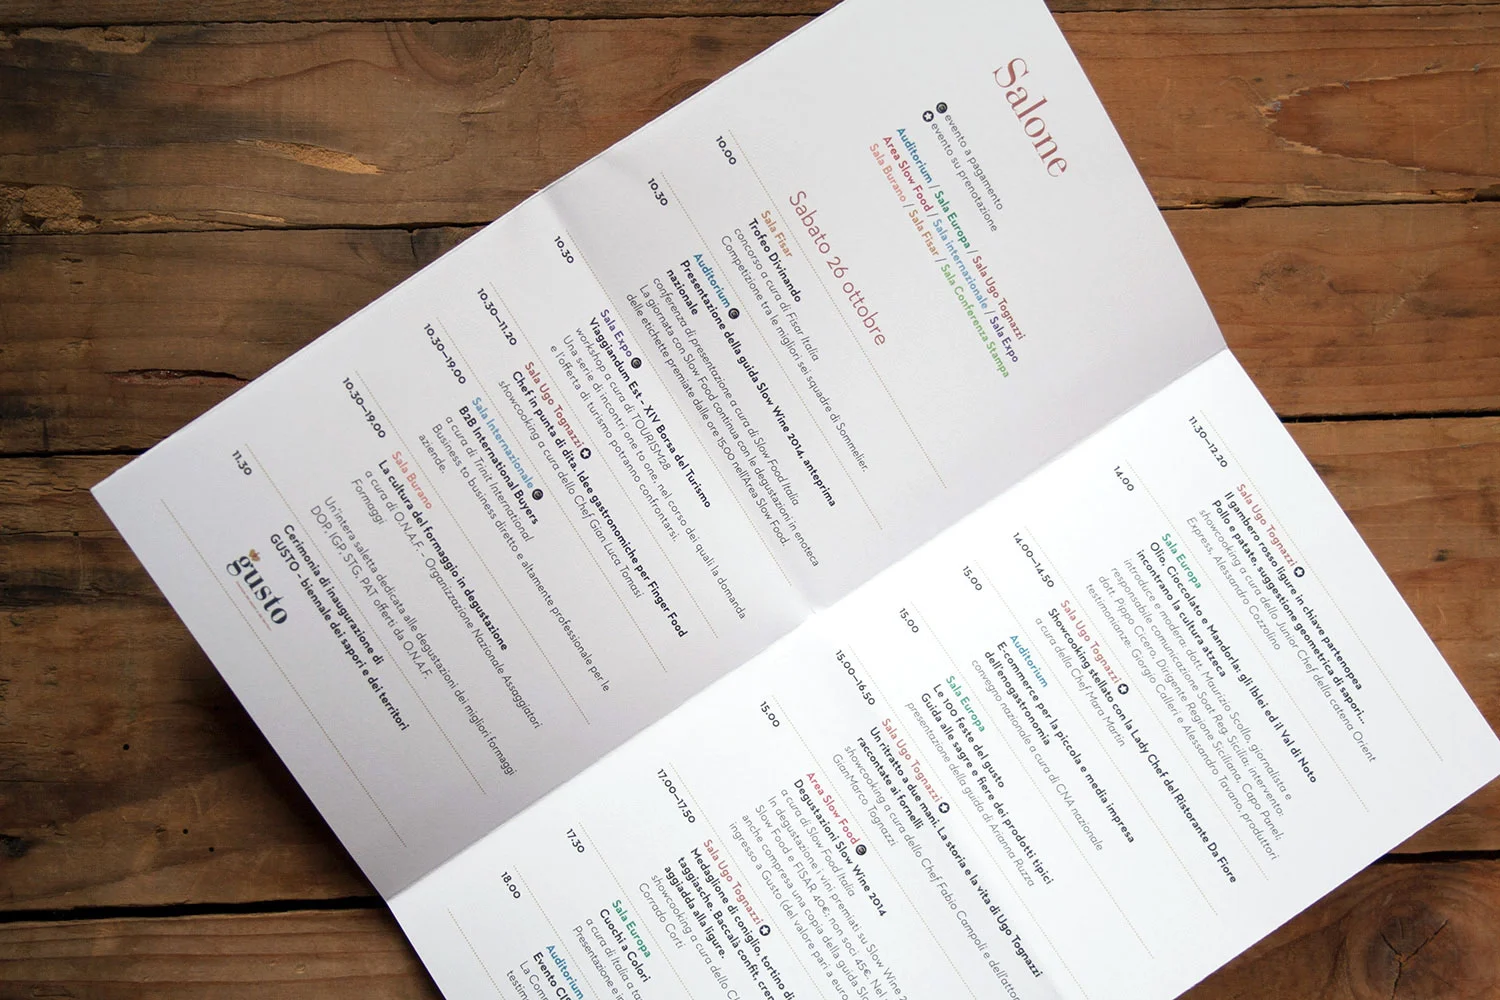 Salone
evento a pagamento
evento su prenotazione
Auditorium / Sala Europa / Sala Ugo Tognazzi
Area Slow Food / Sala internazionale / Sala Expo
Sala Burano / Sala Fisar / Sala Conferenza Stampa
Sabato 26 ottobre
10.00
Sala Fisar
Trofeo Divinando
concorso a cura di Fisar Italia
Competizione tra le migliori sei squadre di Sommelier.
10.30
Auditorium
Presentazione della guida Slow Wine 2014, anteprima
nazionale
conferenza di presentazione a cura di Slow Food Italia
La giornata con Slow Food continua con le degustazioni in enoteca
delle etichette premiate dalle ore 15.00 nell'Area Slow Food.
10.30
Sala Expo
Viaggiandum Est - XIV Borsa del Turismo
workshop a cura di TOURISM28
Una serie di incontri one to one, nel corso dei quali la domanda
e l'offerta di turismo potranno confrontarsi.
10.30—11.20
Sala Ugo Tognazzi
Chef in punta di dita. Idee gastronomiche per Finger Food
showcooking a cura dello Chef Gian Luca Tomasi
10.30—19.00
Sala Internazionale
B2B International Buyers
a cura di Trinit International
Business to business diretto e altamente professionale per le
aziende.
10.30—19.00
Sala Burano
La cultura del formaggio in degustazione
a cura di O.N.A.F. - Organizzazione Nazionale Assaggiatori
Formaggi
Un'intera saletta dedicata alle degustazioni dei migliori formaggi
DOP, IGP, STG, PAT offerti da O.N.A.F.
11.30
Cerimonia di inaugurazione di
GUSTO – biennale dei sapori e dei territori
gusto
11.30—12.20
Sala Ugo Tognazzi
Il gambero rosso ligure in chiave partenopea
Pollo e patate, suggestione geometrica di sapori...
showcooking a cura dello Junior Chef della catena Orient
Express, Alessandro Cozzolino
14.00
Sala Europa
Olio, Cioccolato e Mandorla: gli Iblei ed il Val di Noto
incontrano la cultura azteca
introduce e modera: dott. Maurizio Scollo, giornalista e
responsabile comunicazione Soat Reg. Sicilia; intervento:
dott. Pippo Cicero, Dirigente Regione Siciliana, Capo Panel;
testimonianze: Giorgio Calleri e Alessandro Tavano, produttori
14.00—14.50
Sala Ugo Tognazzi
Showcooking stellato con la Lady Chef del Ristorante Da Fiore
a cura della Chef Mara Martin
15.00
Auditorium
E-commerce per la piccola e media impresa
dell'enogastronomia
convegno nazionale a cura di CNA nazionale
15.00
Sala Europa
Le 100 feste del gusto
Guida alle sagre e fiere dei prodotti tipici
presentazione della guida di Arianna Ruzza
15.00—16.50
Sala Ugo Tognazzi
Un ritratto a due mani. La storia e la vita di Ugo Tognazzi
raccontate ai fornelli
showcooking a cura dello Chef Fabio Campoli e dell'attor
GianMarco Tognazzi
15.00
Area Slow Food
Degustazioni Slow Wine 2014
a cura di Slow Food Italia
In degustazione i vini premiati su Slow Wine 2
Slow Food e FISAR 40€; non soci 45€. Nel
anche compresa una copia della guida Slo
ingresso a Gusto (del valore pari a euro
17.00—17.50
Sala Ugo Tognazzi
Medaglione di coniglio, tortino di
taggiasche. Baccalà confit, crem
aggiadda alla ligure.
showcooking a cura dello Ch
Corrado Corti
17.30
Sala Europa
Cuochi a Colori
a cura di Italia a ta
Presentazione e in
18.00
Auditorium
Evento CI
La Com
testim